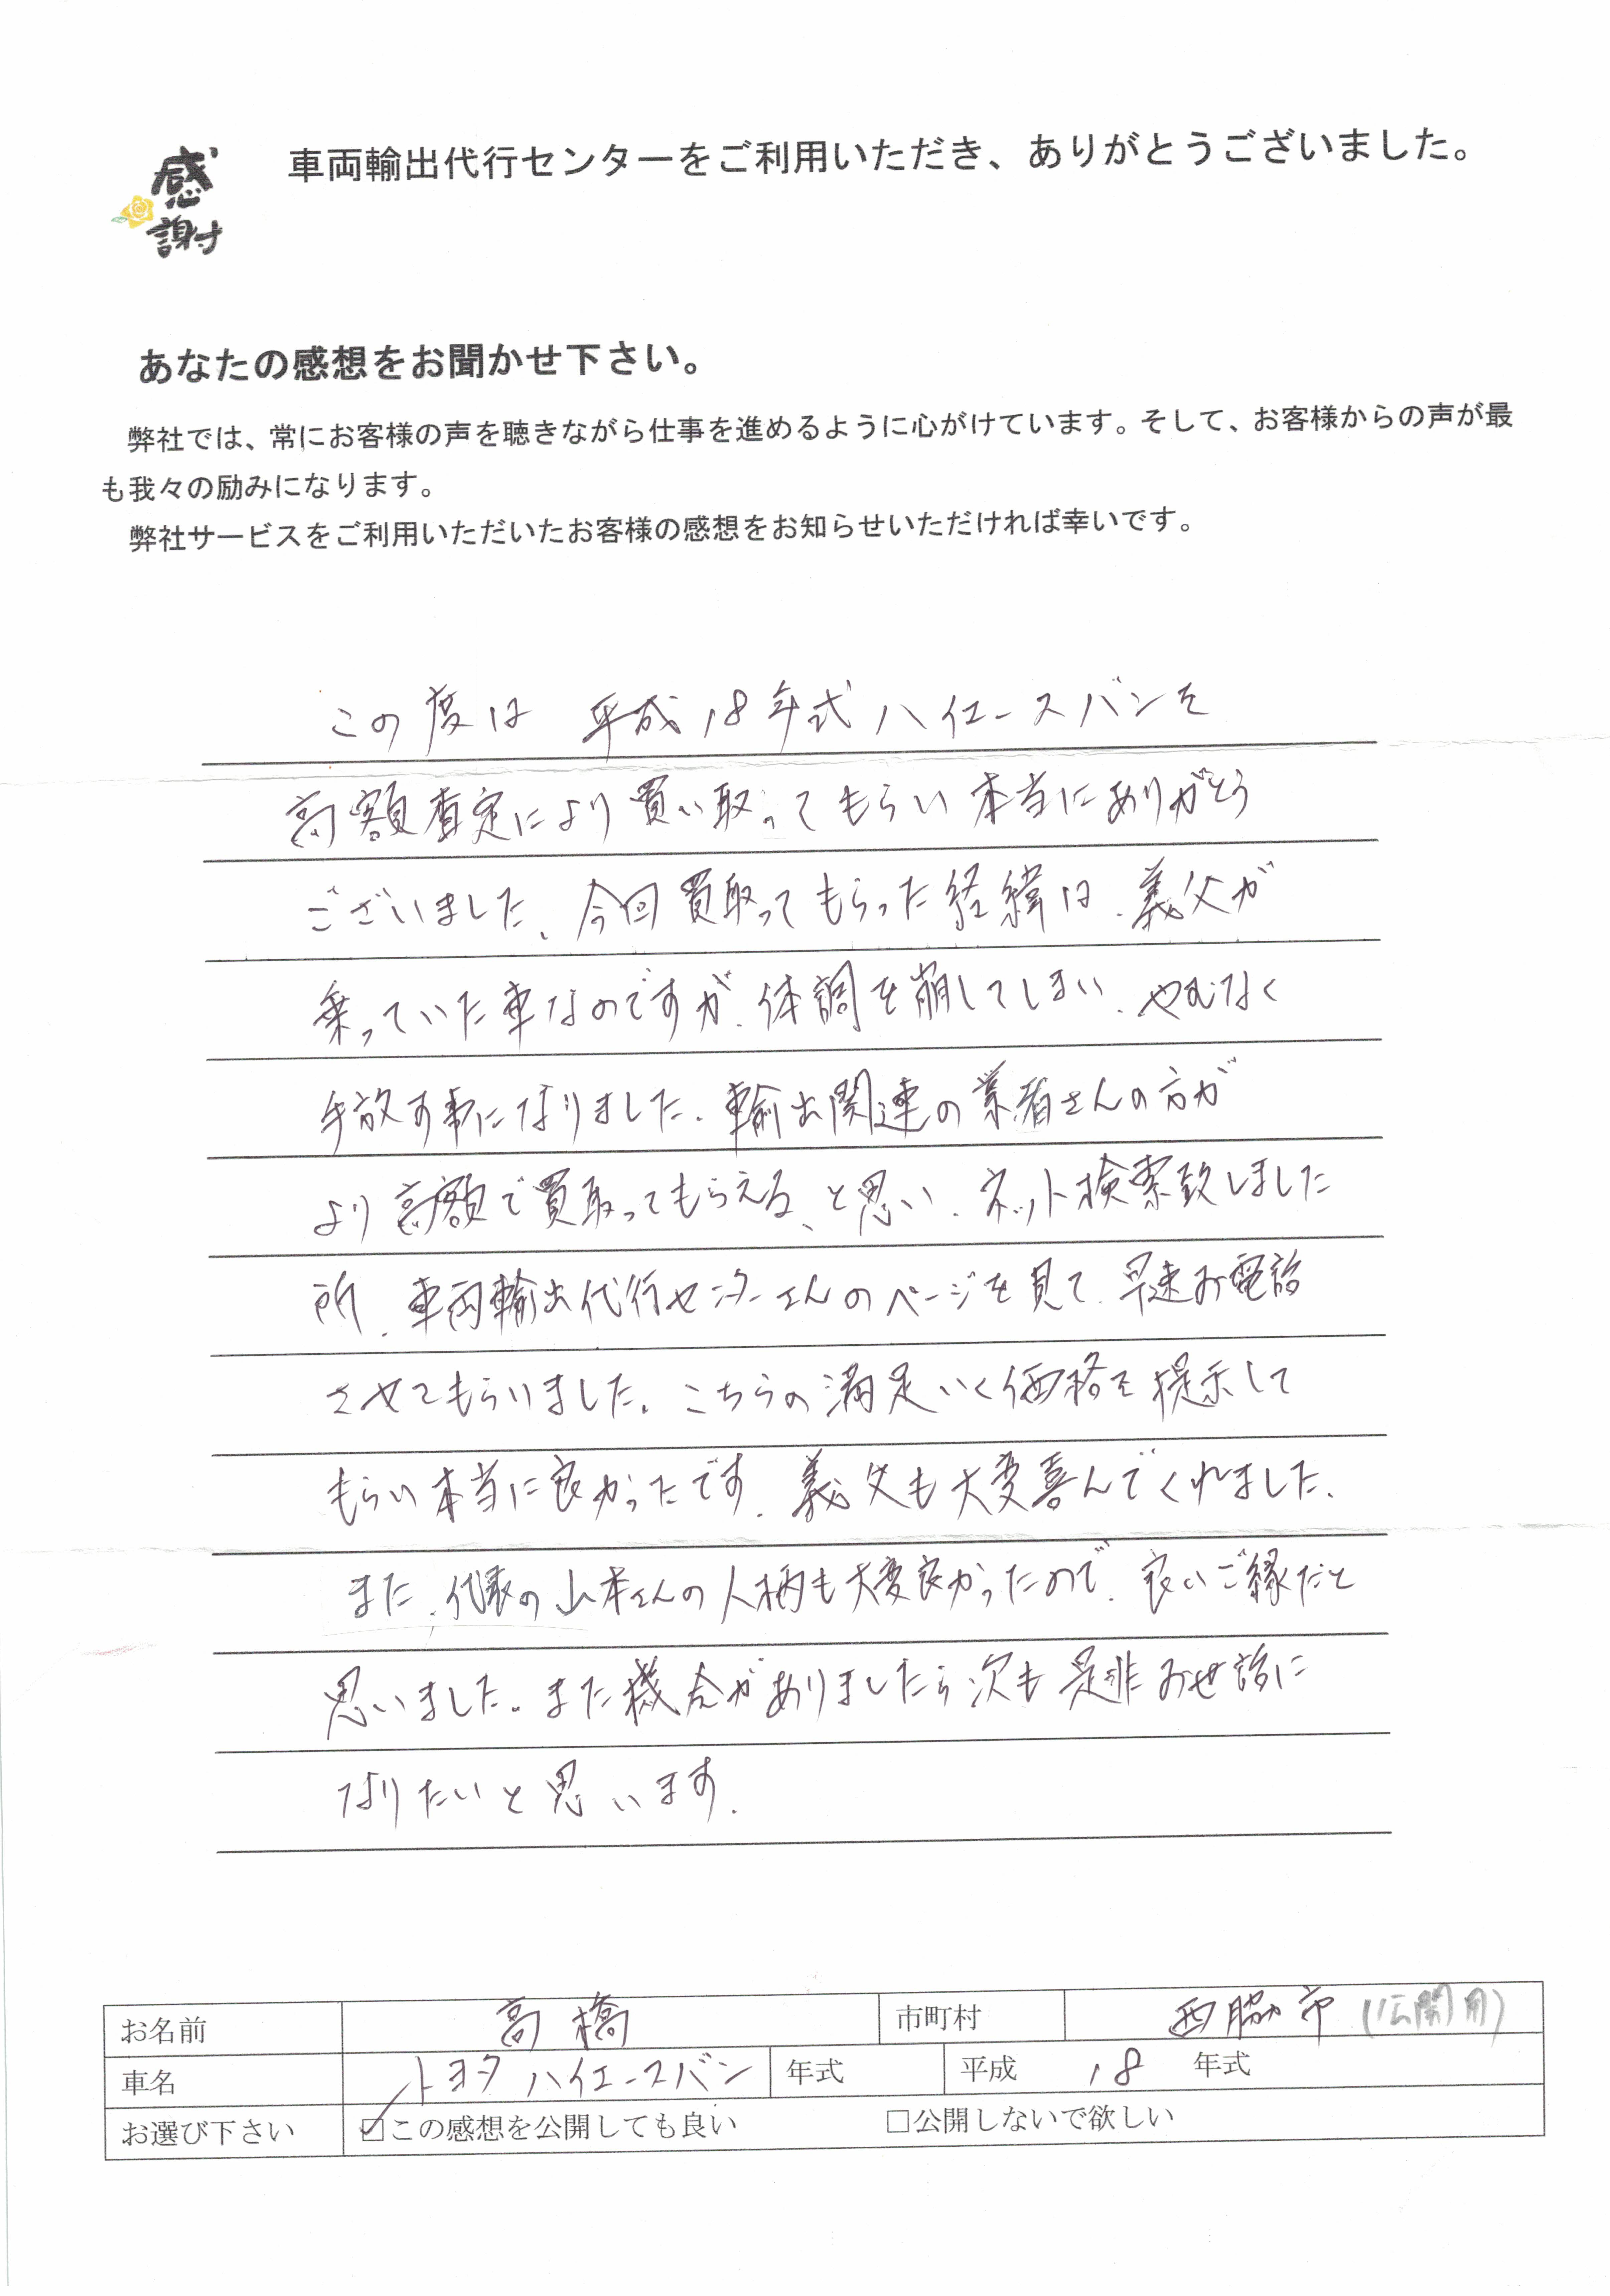 感謝
車両輸出代行センターをご利用いただき、ありがとうございました。
あなたの感想をお聞かせ下さい。
弊社では、常にお客様の声を聴きながら仕事を進めるように心がけています。そして、お客様からの声が最
も我々の励みになります。
弊社サービスをご利用いただいたお客様の感想をお知らせいただければ幸いです。
この度は 平成18年式ハイエースバンを
高額査定により買い取ってもらい本当にありがとう
ございました、今回買取ってもらった経緯は、義父が
乗っていた車なのですが、体調を崩してしまい、やむなく
手放す事になりました、輸出関連の業者さんの方が
より高額で買取ってもらえる、と思い、ネット検索致しました
所、車両輸出代行センターさんのページを見て、早速お電話
させてもらいました。こちらの満足いく価格を提示して
もらい本当に良かったです、義父も大変喜んでくれました、
また、代表の山本さんの人柄も大変良かったので、良いご縁だと
思いました。また機会がありましたら次も是非お世話に
なりたいと思います、
お名前 高橋 市町村 西脇市(公開用)
車名 トヨタ ハイエースバン 年式 平成 18 年式
お選び下さい ☑この感想を公開しても良い □公開しないで欲しい